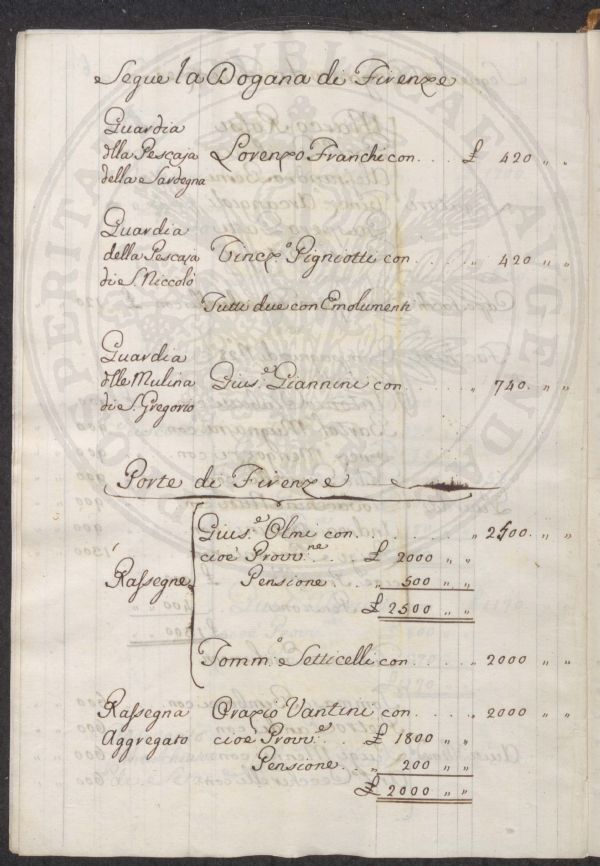 Segue la Dogana di Firenze
Guardia
dlla Pescaja Lorenzo Franchi con . . . . £ 420 „ „
della Sardegna
Guardia
della Pescaja Vincz.º Pigniotti con . . . . „ 420 „ „
di S. Niccolò
Tutti due con Emolumenti
Guardia
dlle Mulina Gius.e Giannini con . . . . . „ 740. „ „
di S. Gregorio
Porte di Firenze
Gius.e Olmi con . . . . . . . . „ 2500. „ „
cioè Provv.ne . . £ 2000 „ „
Rassegne Pensione . . . „ 500 „ „
£ 2500 „ „
Tomm.o Setticelli con . . . . „ 2000 „ „
Rassegna Orazio Vantini con . . . . „ 2000 „ „
Aggregato cioè Provv.e . . £ 1800 „ „
Pensione . . „ 200 „ „
£ 2000 „ „
PROSPERITATI PUBLICAE AUGENDAE